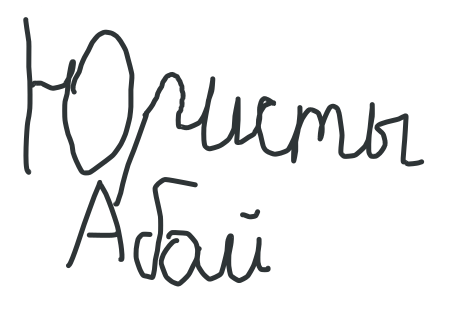 Юристы
Абай